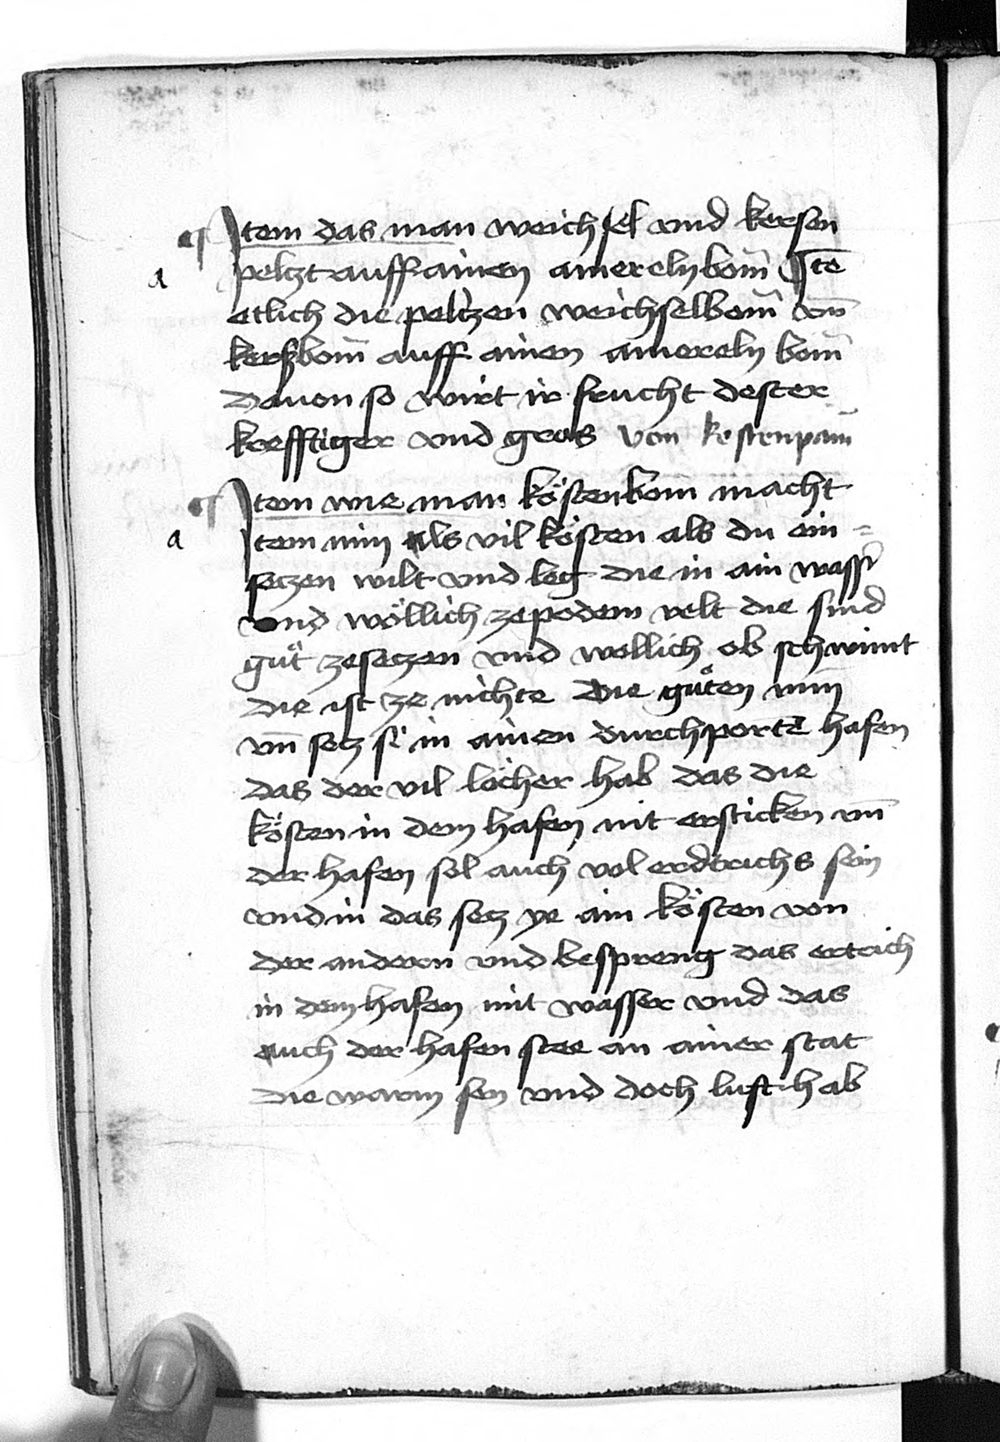 ¶ Item das man weichsel vnd kersen
a peltzt auff ainen amerelnbom̄ Itē
etlich die peltzen weichselbom̄ vn̄
kerßbom̄ auff ainen amereln bom̄
Dauon so wirt ir frucht dester
krefftiger vnd gros von kestenpam̄
¶ Item wie man köstenbom macht
a Item nim als vil kösten als du ein=
seczen wilt vnd leg die in ain wasser
vnd wöllich zepodem velt die sind
gůt zeseczen vnd wöllich ob schwimt
die ist ze nichte Die gůten nim
vn̄ secz si in ainen durchportē hafen
das der vil löcher hab das die
kösten in dem hafen nit ersticken vn̄
der hafen sol auch vol erdtrichs sein
vnd in das secz ye ain kösten von
der andern vnd bespreng das ertrich
in dem hafen mit wasser vnd das
auch der hafen stee an ainer stat
die warm sey vnd doch luft hab